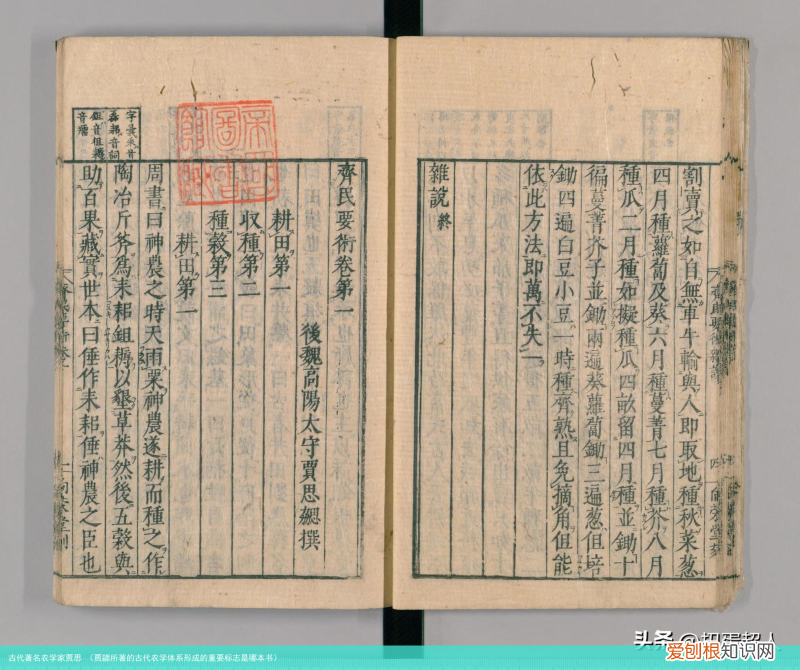 割賣之如自無車牛輸與人即取地種秋菜葱
四月種蘿蔔及葵六月種蔓菁七月種芥八月
種瓜二月種如擬種瓜四畝留四月種並鋤十
徧蔓菁芥子並鋤兩遍葵蘿蔔鋤三遍葱但培
鋤四遍白豆小豆一時種齊熟且免摘角但能
依此方法即萬不失一
雜說終
齊民要術卷第一
後魏高陽太守賈思勰撰
耕田第一
收種第二
種穀第三
耕田第一
周書曰神農之時天雨粟神農遂耕而種之作
陶冶斤斧爲耒耜鉏耨以墾草莽然後五穀興
助百果藏實世本曰倕作耒耜倕神農之臣也
头条 @扣蛋超人
爱创根知识网
古代著名农学家贾思 （贾勰所著的古代农学体系形成的重要标志是哪本书）